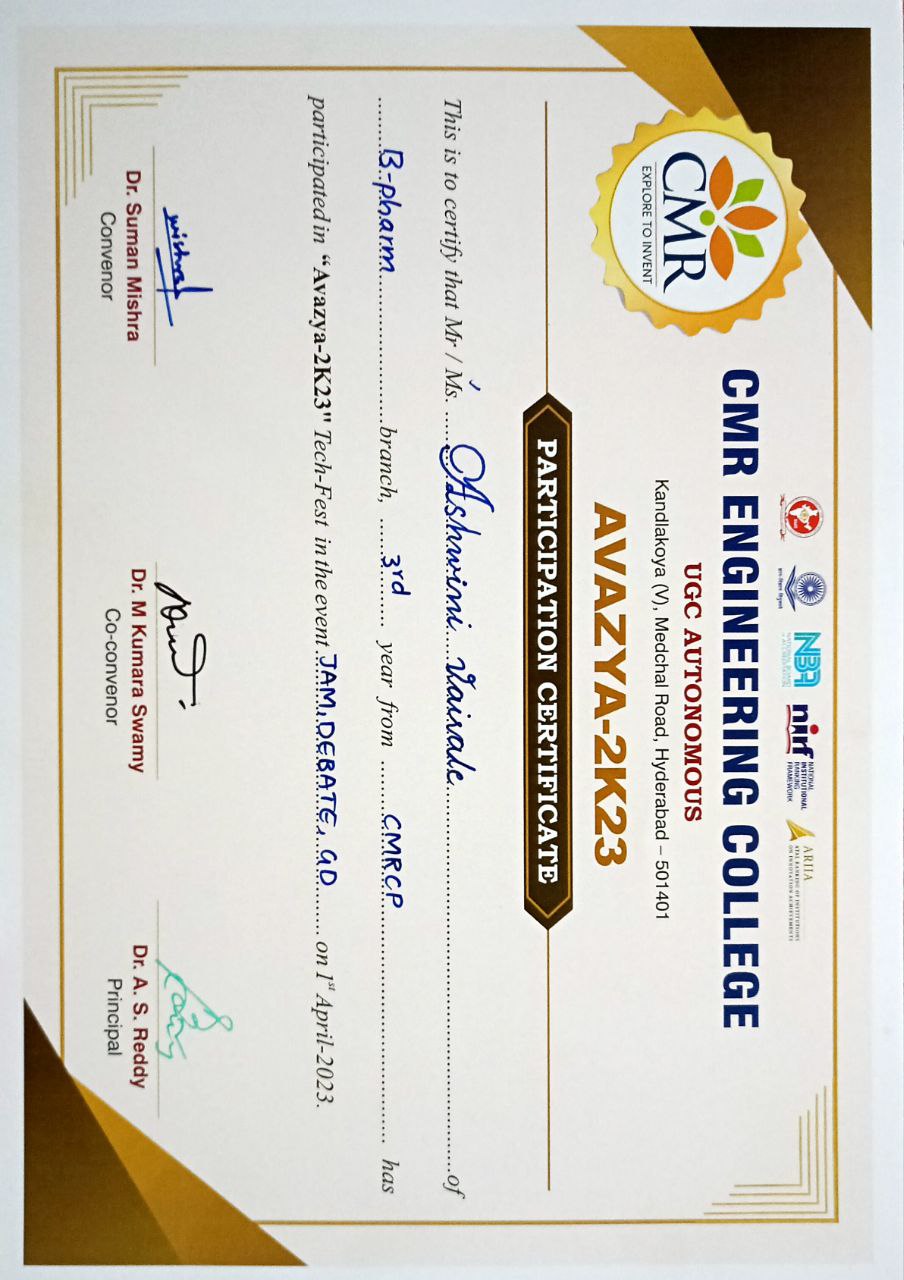 NBA
NATIONAL BOARD
of ACCREDITATION
nirf NATIONAL
INSTITUTIONAL
RANKING
FRAMEWORK
ARIIA
ATAL RANKING OF INSTITUTIONS
ON INNOVATION ACHIEVEMENTS
CMR ENGINEERING COLLEGE
UGC AUTONOMOUS
Kandlakoya (V), Medchal Road, Hyderabad – 501401
CMR
EXPLORE TO INVENT
AVAZYA-2K23
PARTICIPATION CERTIFICATE
This is to certify that Mr / Ms. Ashwini Vaisale of
B-pharm branch, 3rd year from CMRCP has
participated in “Avazya-2K23" Tech-Fest in the event JAM, DEBATE, GD on 1st April-2023.
Dr. Suman Mishra
Convenor
Dr. M Kumara Swamy
Co-convenor
Dr. A. S. Reddy
Principal